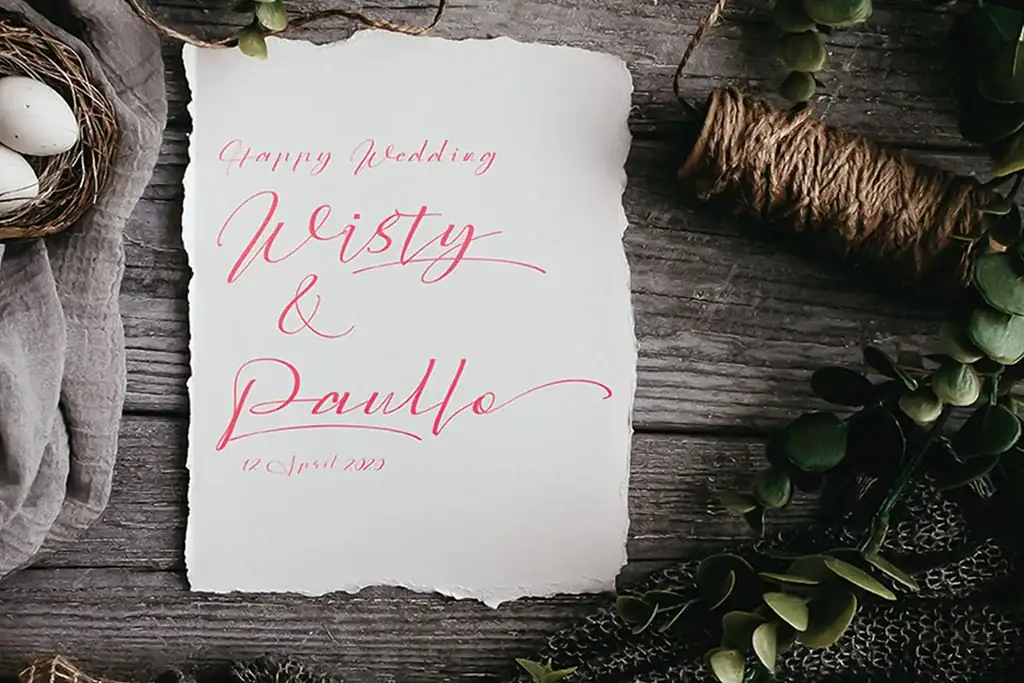 Happy Wedding
Wisty
&
Paullo
12 April 2020